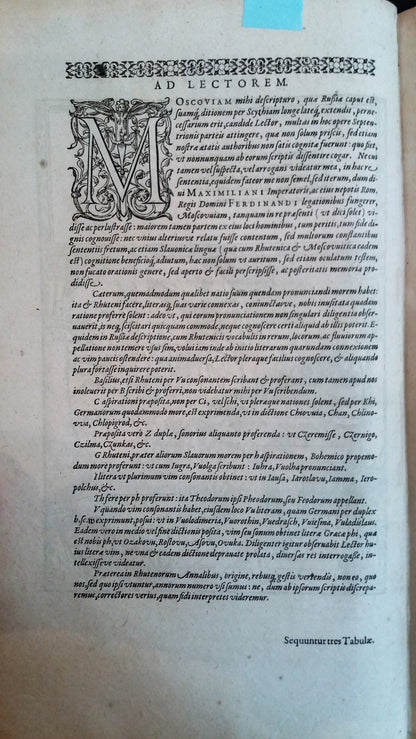 AD LECTOREM.
MOSCOVIAM mihi descripturo, quæ Russiæ caput est,
suamq; ditionem per Scythiam longe lateq; extendit, perne-
cessarium erit, candide Lector, multas in hoc opere Septen-
trionis parteis attingere, quæ non solum priscis, sed etiam
nostræ ætatis authoribus non satis cognitæ fuerunt: quo fiet,
vt nonnunquam ab eorum scriptis dissentire cogar. Ne cui
tamen vel suspecta, vel arrogans videatur mea, in hac re
sententia, equidem fateor me non semel, sed iterum, dum di-
ui MAXIMILIANI Imperatoris, ac eius nepotis Rom.
Regis Domini FERDINANDI legationibus fungerer,
Moscouiam, tanquam in re præsenti (vt dici solet) vi-
disse ac perlustrasse: maiorem tamen partem ex eius loci hominibus, tum peritis, tum fide di-
gnis cognouisse: nec vnius alteriusve relatu fuisse contentum, sed multorum constantibus
sententiis fretum, ac etiam Slauonicæ linguæ (quæ cum Rhutenica & Moscouitica eadem
est) cognitione beneficioq; adiutum, hæc non solum vt auritum, sed etiam oculatum testem,
non fucato orationis genere, sed aperto & facili perscripsisse, ac posteritatis memoria pro-
didisse.
Cæterum, quemadmodum quælibet natio suum quendam pronunciandi morem habet:
ita & Rhuteni facere, literasq; suas varie connexas, coniunctasve, nobis inusitata quadam
ratione proferre solent: adeo vt, qui eorum pronunciationem non singulari diligentia obser-
uauerit, is neq; sciscitari quicquam commode, neque cognoscere certi aliquid ab illis poterit. E-
quidem in Russiæ descriptione, cum Rhutenicis vocabulis in rerum, locorum, ac fluuiorum ap-
pellatione non temere vsus sim, volui iam inde ab initio literarum quarundam connexionem
ac vim paucis ostendere: qua animaduersa, Lector pleraque facilius cognoscere, & aliquando
plura fortasse inquirere poterit.
Basilius, etsi Rhuteni per V u consonantem scribant & proferant, cum tamen apud nos
inoleuerit per B scribi & proferri, non videbatur mihi per V u scribendum.
C aspirationi præposita, non per Ci, vel schi, vt pleræque nationes solent, sed per Khi,
Germanorum quodammodo more, est exprimenda, vt in dictione Chiovuia, Chan, Chlino-
vua, Chlopigrod, &c.
Præposita vero Z duplæ, sonorius aliquanto proferenda: vt Czeremisse, Czernigo,
Czilma, Czunkas, &c.
G Rhuteni, præter aliorum Slauorum morem per h aspirationem, Bohemico propemo-
dum more proferunt: vt cum Iugra, Vuolga scribunt: Iuhra, Vuolha pronunciant.
I litera vt plurimum vim consonantis obtinet: vt in Iausa, Iaroslavu, Iamma, Iero-
polchus, &c.
Th fere per ph proferunt: ita Theodorum ipsi Pheodorum, seu Feodorum appellant.
V quando vim consonantis habet, eius dem loco V u literam, quam Germani per duplex
b. se. w exprimunt, posui: vt in Vuolodimeria, Vuorothin, Vuedrasch, Vuiesma, Vuladislaus.
Eadem vero in medio vel fine dictionis posita, vim seu sonum obtinet literæ Græcæ phi, quæ
est nobis ph, vt Ozakovu, Rostovu, Asovu, Ovuka. Diligenter igitur obseruabit Lector hu-
ius literæ vim, ne vna & eadem dictione deprauate prolata, diuersas res interrogasse, in-
tellexisseve videatur.
Præterea in Rhutenorum Annalibus, origine, rebusq; gestis vertendis, non eo, quo
nos, sed quo ipsi vtuntur, annorum numero vsi sumus: ne, dum ab ipsorum scriptis discrepa-
remus, correctores verius, quam fidi interpretes videremur.
Sequuntur tres Tabulæ.